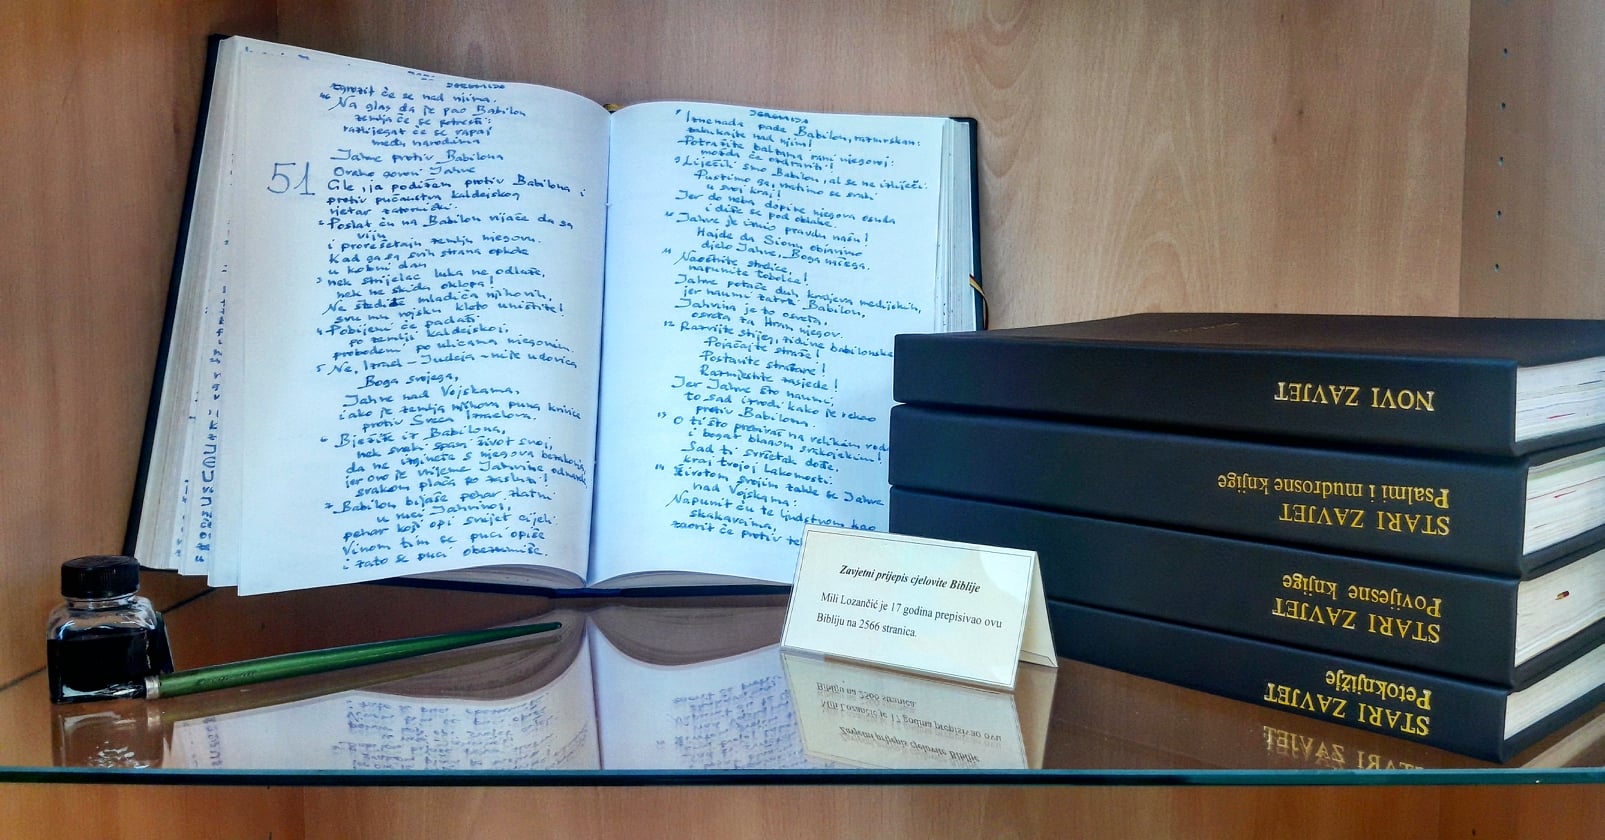 JEREMIJA
zgrozit će se nad njima.
46 Na glas da je pao Babilon
zemlja će se potresti:
razlijegat će se vapaj
među narodima
Jahve protiv Babilona
51 Ovako govori Jahve
Gle, ja podižem protiv Babilona i
protiv pučanstva kaldejskog
vjetar zatornički.
2 Poslat ću na Babilon vijače da ga
viju
i prorešetaju zemlju njegovu.
Kad ga sa svih strana opkole
u kobni dan
3 nek strijelac luka ne odlaže,
nek ne skida oklopa!
Ne štedite mladića njihovih,
svu mu vojsku kleto uništite!
4 Pobijeni će padati
po zemlji kaldejskoj,
probodeni po ulicama njegovim.
5 Ne, Izrael - Judeja - nije udovica
Boga svojega,
Jahve nad Vojskama,
iako je zemlja njihova puna krivice
protiv Sveca Izraelova.
6 Bježite iz Babilona,
nek svaki spasi život svoj,
da ne izginete s njegova bezakonja,
jer ovo je vrijeme Jahvine odmazde,
svakom plaća po zasluzi!
7 Babilon bijaše pehar zlatni
u ruci Jahvinoj,
pehar koji opi svijet cijeli:
Vinom tim se puci opiše
i zato se puci obezumiše.
JEREMIJA
8 Iznenada pade Babilon, razmrskan:
zakukajte nad njim!
Potražite balzama rani njegovoj:
možda će ozdraviti!
9 Liječili smo Babilon, al se ne izliječi:
Pustimo ga, vratimo se svaki
u svoj kraj!
Jer do neba dopire njegova osuda
i diže se pod oblake.
10 Jahve je iznio pravdu našu!
Hajde da Sionu objavimo
djelo Jahve, Boga našega.
11 Naoštrite strelice,
napunite tobolce!
Jahve potače duh kraljeva medijskih,
jer naumi zatrti Babilon,
Jahvina je to osveta,
osveta za Hram njegov.
12 Razvijte stijeg, zidine babilonske
Pojačajte straže!
Postavite stražare!
Razmjestite zasjede!
Jer Jahve što naumi,
to sad izvodi kako je rekao
protiv Babilona.
13 O ti što prebivaš na velikim vod
i bogat blagom svakojakim!
Sad ti svršetak dođe,
kraj tvojoj lakomosti.
14 Životom svojim zakle se Jahve
nad Vojskama:
Napunit ću te ljudstvom kao
skakavcima,
zaorit će protiv te
Zavjetni prijepis cjelovite Biblije
Mili Lozančić je 17 godina prepisivao ovu
Bibliju na 2566 stranica.
NOVI ZAVJET
STARI ZAVJET
Psalmi i mudrosne knjige
STARI ZAVJET
Povijesne knjige
STARI ZAVJET
Petoknjižje